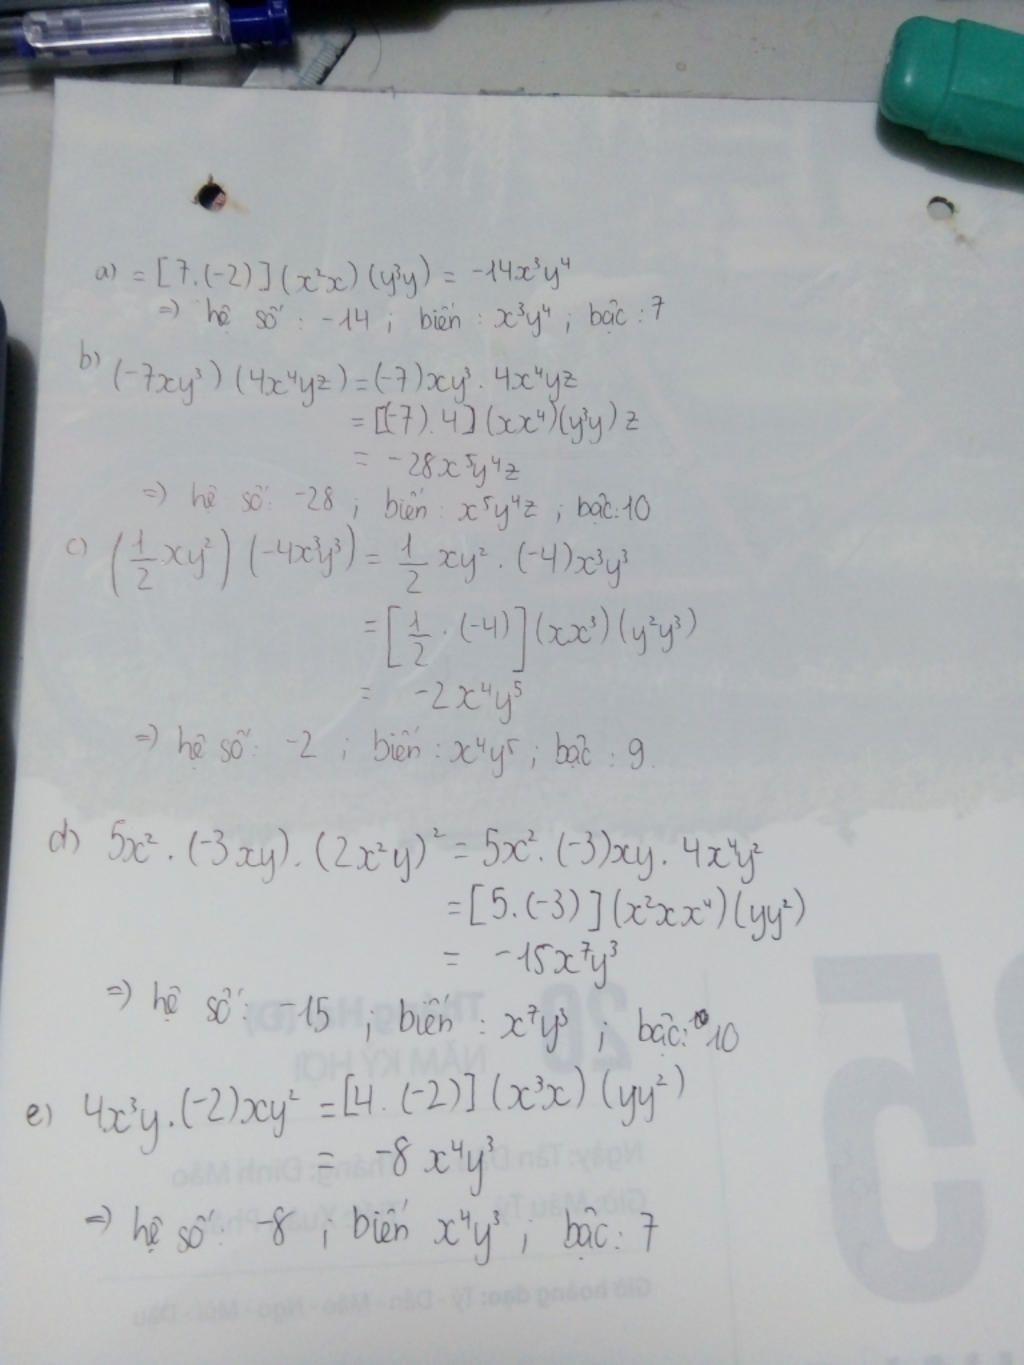 a) = [7.(-2)](x²x)(y³y) = -14x³y⁴
=> hệ số : -14 ; biến : x³y⁴ ; bậc : 7
b) (-7xy³)(4x⁴yz) = (-7)xy³. 4x⁴yz
= [(-7).4](xx⁴)(y³y)z
= -28x⁵y⁴z
=> hệ số: -28 ; biến : x⁵y⁴z ; bậc:10
c) (1/2 xy²)(-4x³y³) = 1/2 xy² . (-4)x³y³
= [1/2 . (-4)](xx³)(y²y³)
= -2x⁴y⁵
=> hệ số: -2 ; biến : x⁴y⁵ ; bậc : 9.
d) 5x² . (-3xy). (2x²y)² = 5x². (-3)xy. 4x⁴y²
= [5.(-3)](x²xx⁴)(yy²)
= -15x⁷y³
=> hệ số: -15 ; biến : x⁷y³ ; bậc: 10
e) 4x³y.(-2)xy² = [4.(-2)](x³x)(yy²)
= -8x⁴y³
=> hệ số: -8 ; biến x⁴y³ ; bậc: 7
NĂM KỶ HỢI
Giờ hoàng đạo: Tý - Dần - Mão - Ngọ - Mùi - Dậu